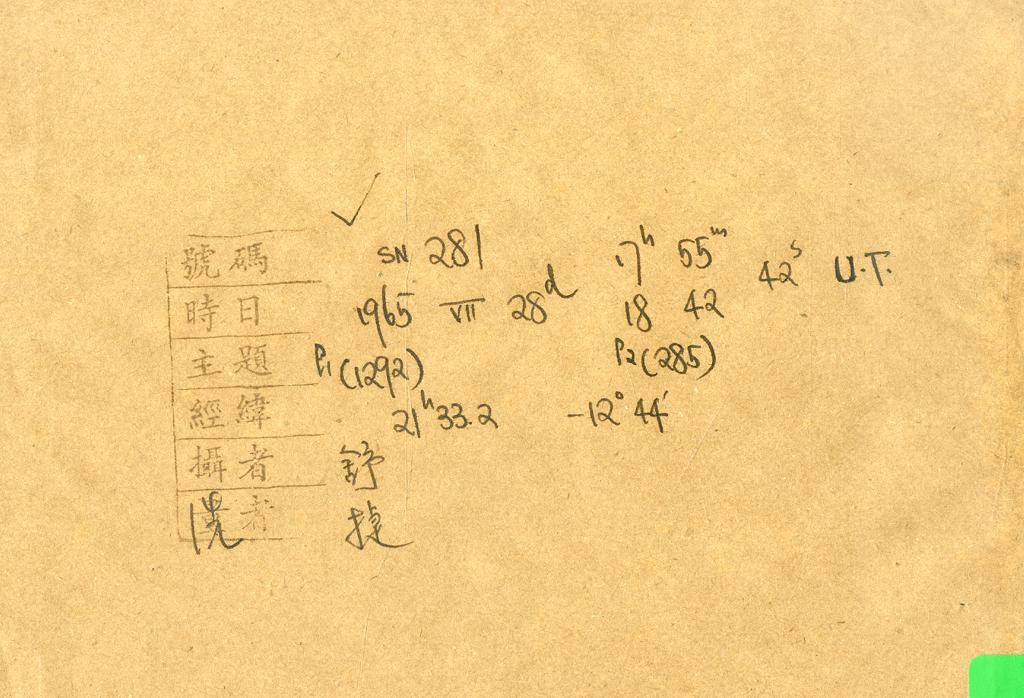 號碼 SN 281 17ʰ 55ᵐ 42ˢ U.T.
時日 1965 VII 28ᵈ 18 42
主題 P₁ (1292) P₂ (285)
經緯 21ʰ 33.2 -12° 44′
攝者 舒
者